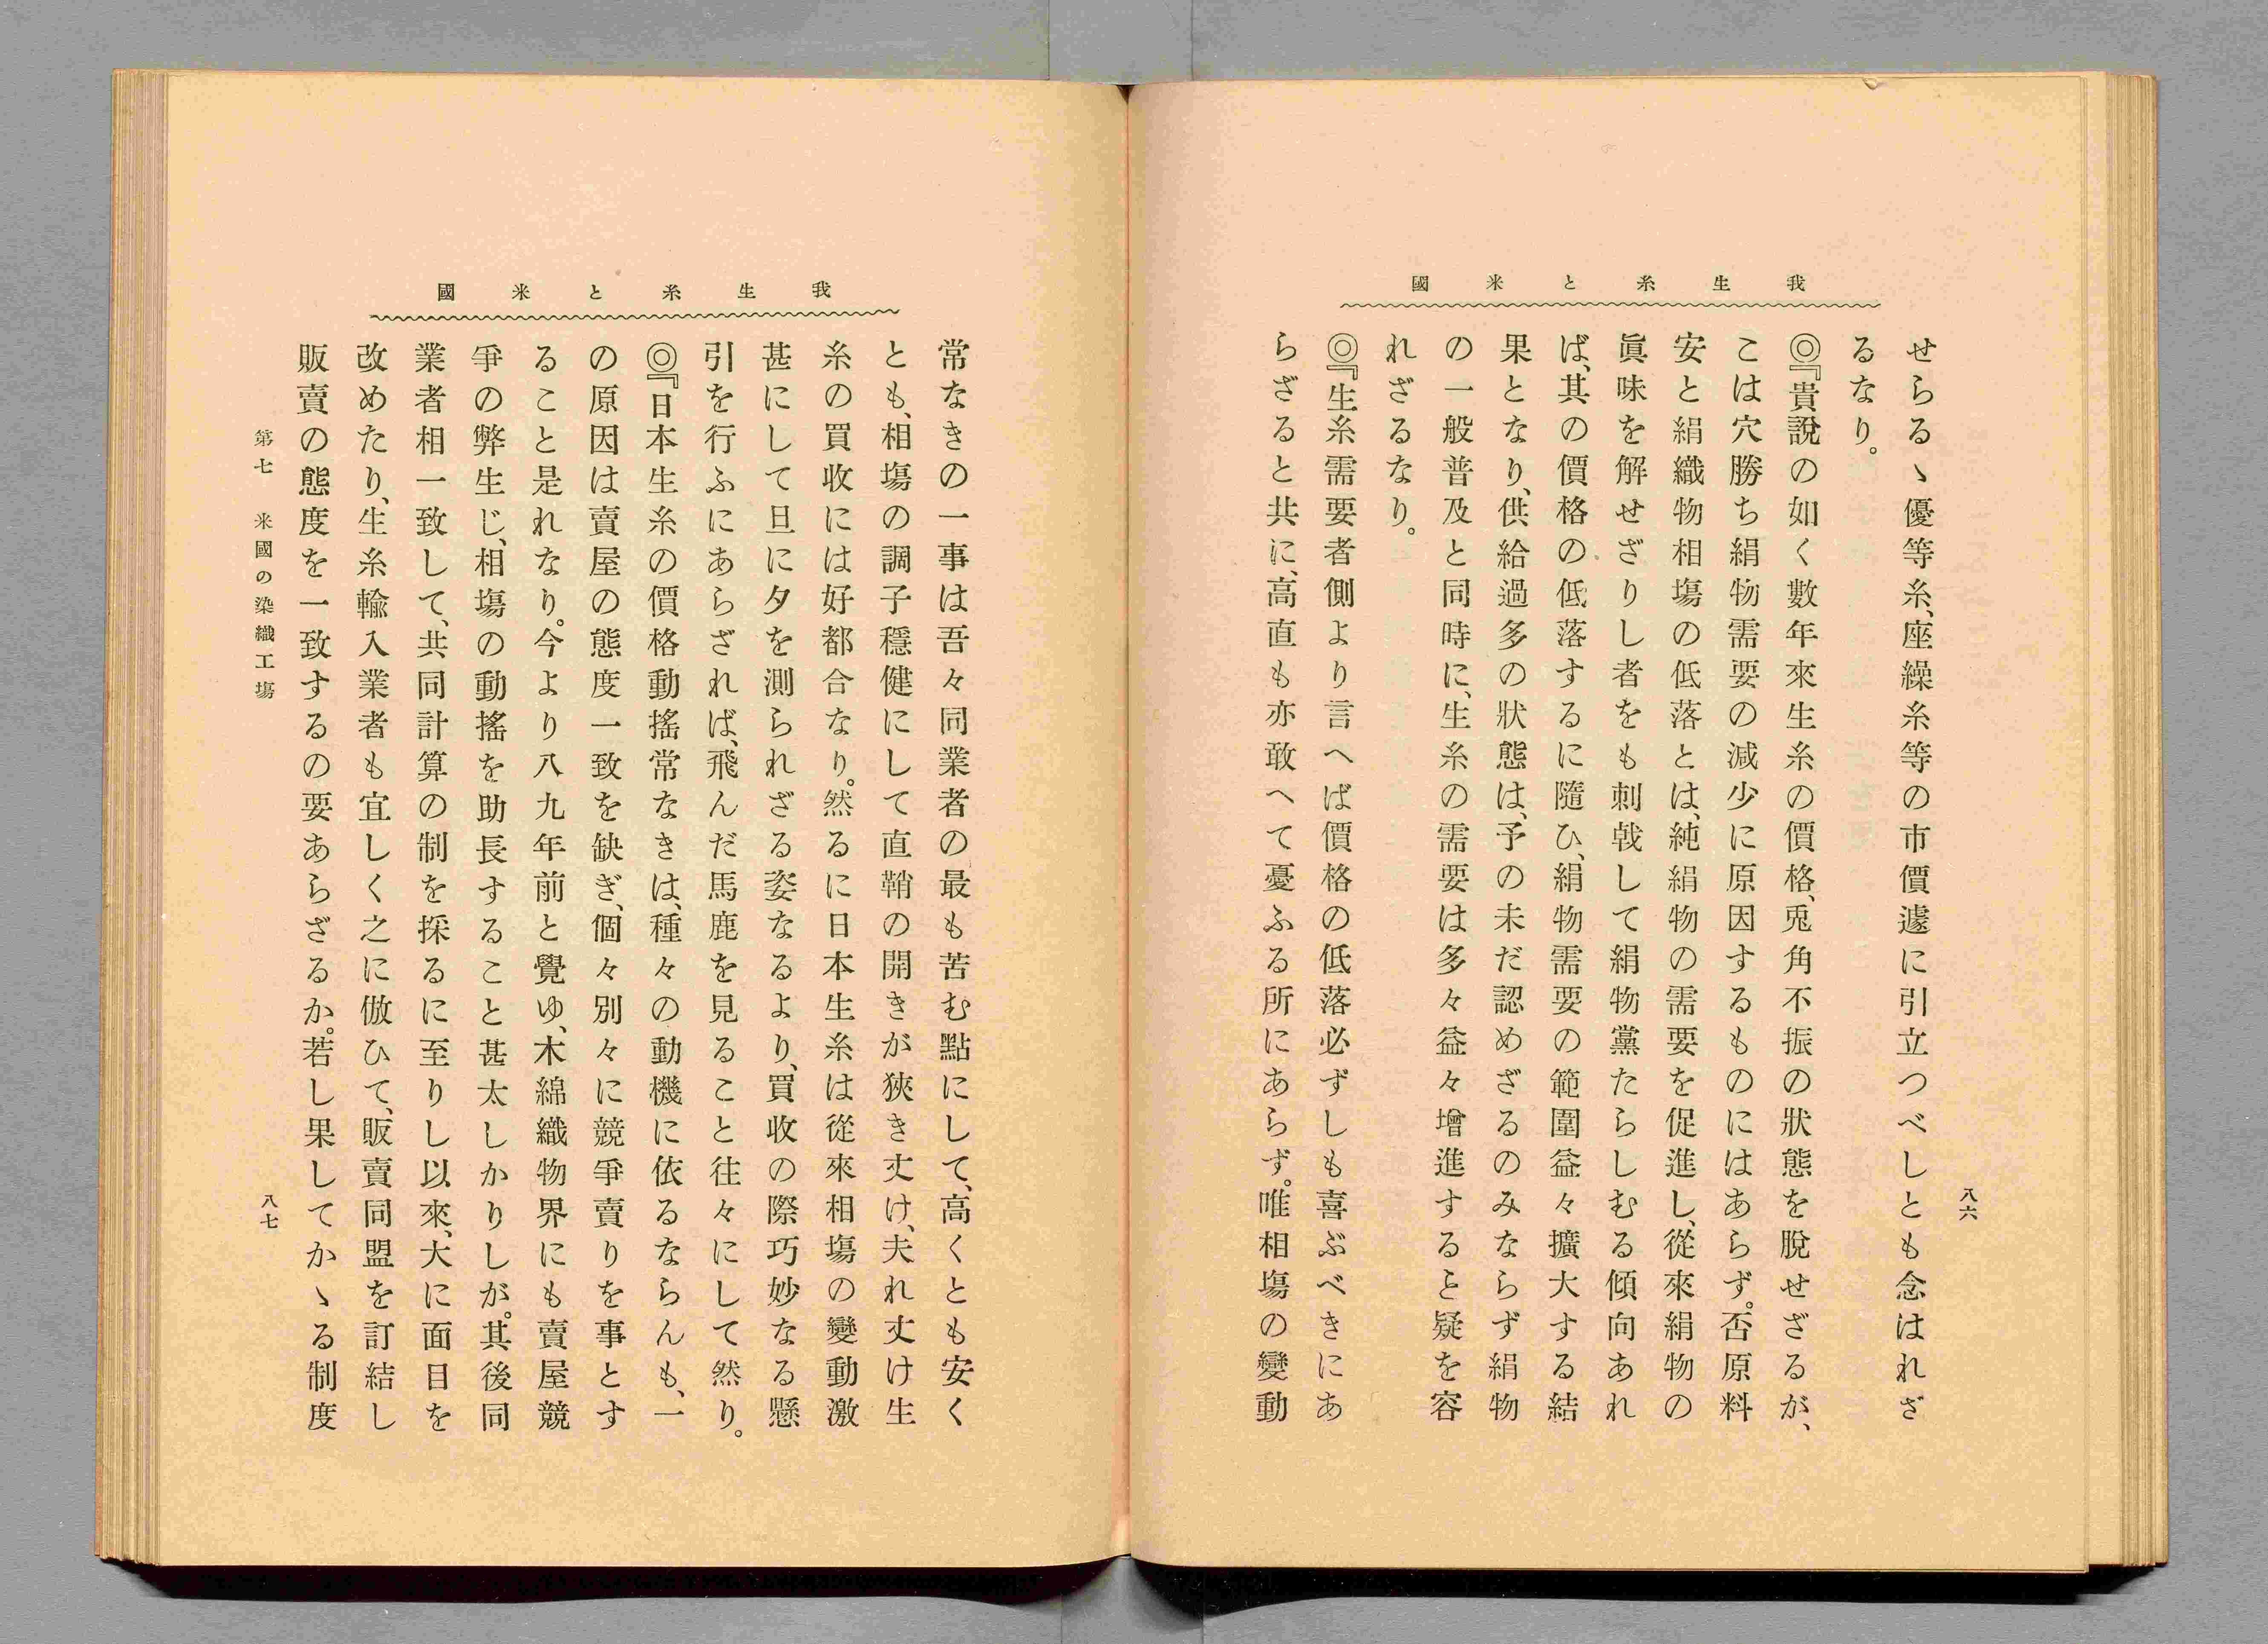 我生糸と米國
せらるゝ優等糸、座繰糸等の市價遽に引立つべしとも念はれざ
るなり。
◎『貴說の如く數年來生糸の價格、兎角不振の狀態を脫せざるが、
こは穴勝ち絹物需要の減少に原因するものにはあらず。否原料
安と絹織物相塲の低落とは、純絹物の需要を促進し、從來絹物の
眞味を解せざりし者をも刺戟して絹物黨たらしむる傾向あれ
ば、其の價格の低落するに隨ひ、絹物需要の範圍益々擴大する結
果となり、供給過多の狀態は、予の未だ認めざるのみならず絹物
の一般普及と同時に、生糸の需要は多々益々增進すると疑を容
れざるなり。
◎『生糸需要者側より言へば價格の低落必ずしも喜ぶべきにあ
らざると共に、高直も亦敢へて憂ふる所にあらず。唯相塲の變動
八六
我生糸と米國
常なきの一事は吾々同業者の最も苦む點にして、高くとも安く
とも、相塲の調子穩健にして直鞘の開きが狹き丈け、夫れ丈け生
糸の買收には好都合なり。然るに日本生糸は從來相塲の變動激
甚にして旦に夕を測られざる姿なるより、買收の際巧妙なる懸
引を行ふにあらざれば、飛んだ馬鹿を見ること往々にして然り。
◎『日本生糸の價格動搖常なきは、種々の動機に依るならんも、一
の原因は賣屋の態度一致を缺ぎ、個々別々に競爭賣りを事とす
ること是れなり。今より八九年前と覺ゆ、木綿織物界にも賣屋競
爭の弊生じ、相塲の動搖を助長すること甚太しかりしが。其後同
業者相一致して、共同計算の制を採るに至りし以來、大に面目を
改めたり、生糸輸入業者も宜しく之に倣ひて、販賣同盟を訂結し
販賣の態度を一致するの要あらざるか。若し果してかゝる制度
第七　米國の染織工塲
八七